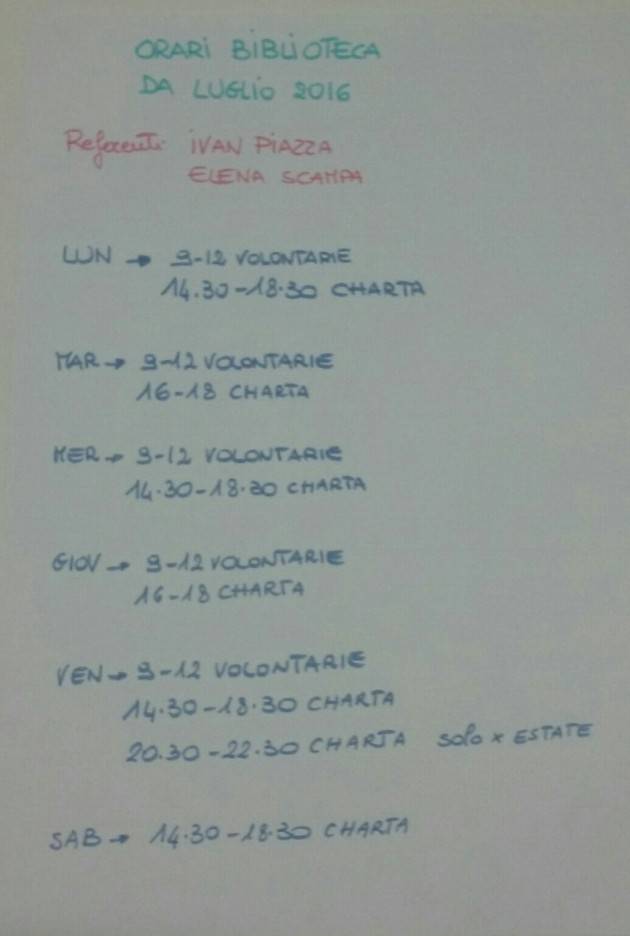 ORARI BIBLIOTECA
DA LUGLIO 2016
Referenti: IVAN PIAZZA
ELENA SCAMPA
LUN → 9-12 VOLONTARIE
14.30-18.30 CHARTA
MAR → 9-12 VOLONTARIE
16-18 CHARTA
MER → 9-12 VOLONTARIE
14.30-18.30 CHARTA
GIOV → 9-12 VOLONTARIE
16-18 CHARTA
VEN → 9-12 VOLONTARIE
14.30-18.30 CHARTA
20.30-22.30 CHARTA solo x ESTATE
SAB → 14.30-18.30 CHARTA